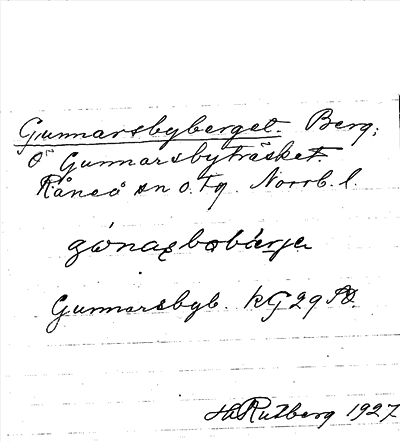 Gunnarsbyberget. Berg,
Ö Gunnarsbyträsket
Råneå sn o. tg. Norrb. l.
Gunnarsbyb. KG 29
Rutberg 1927